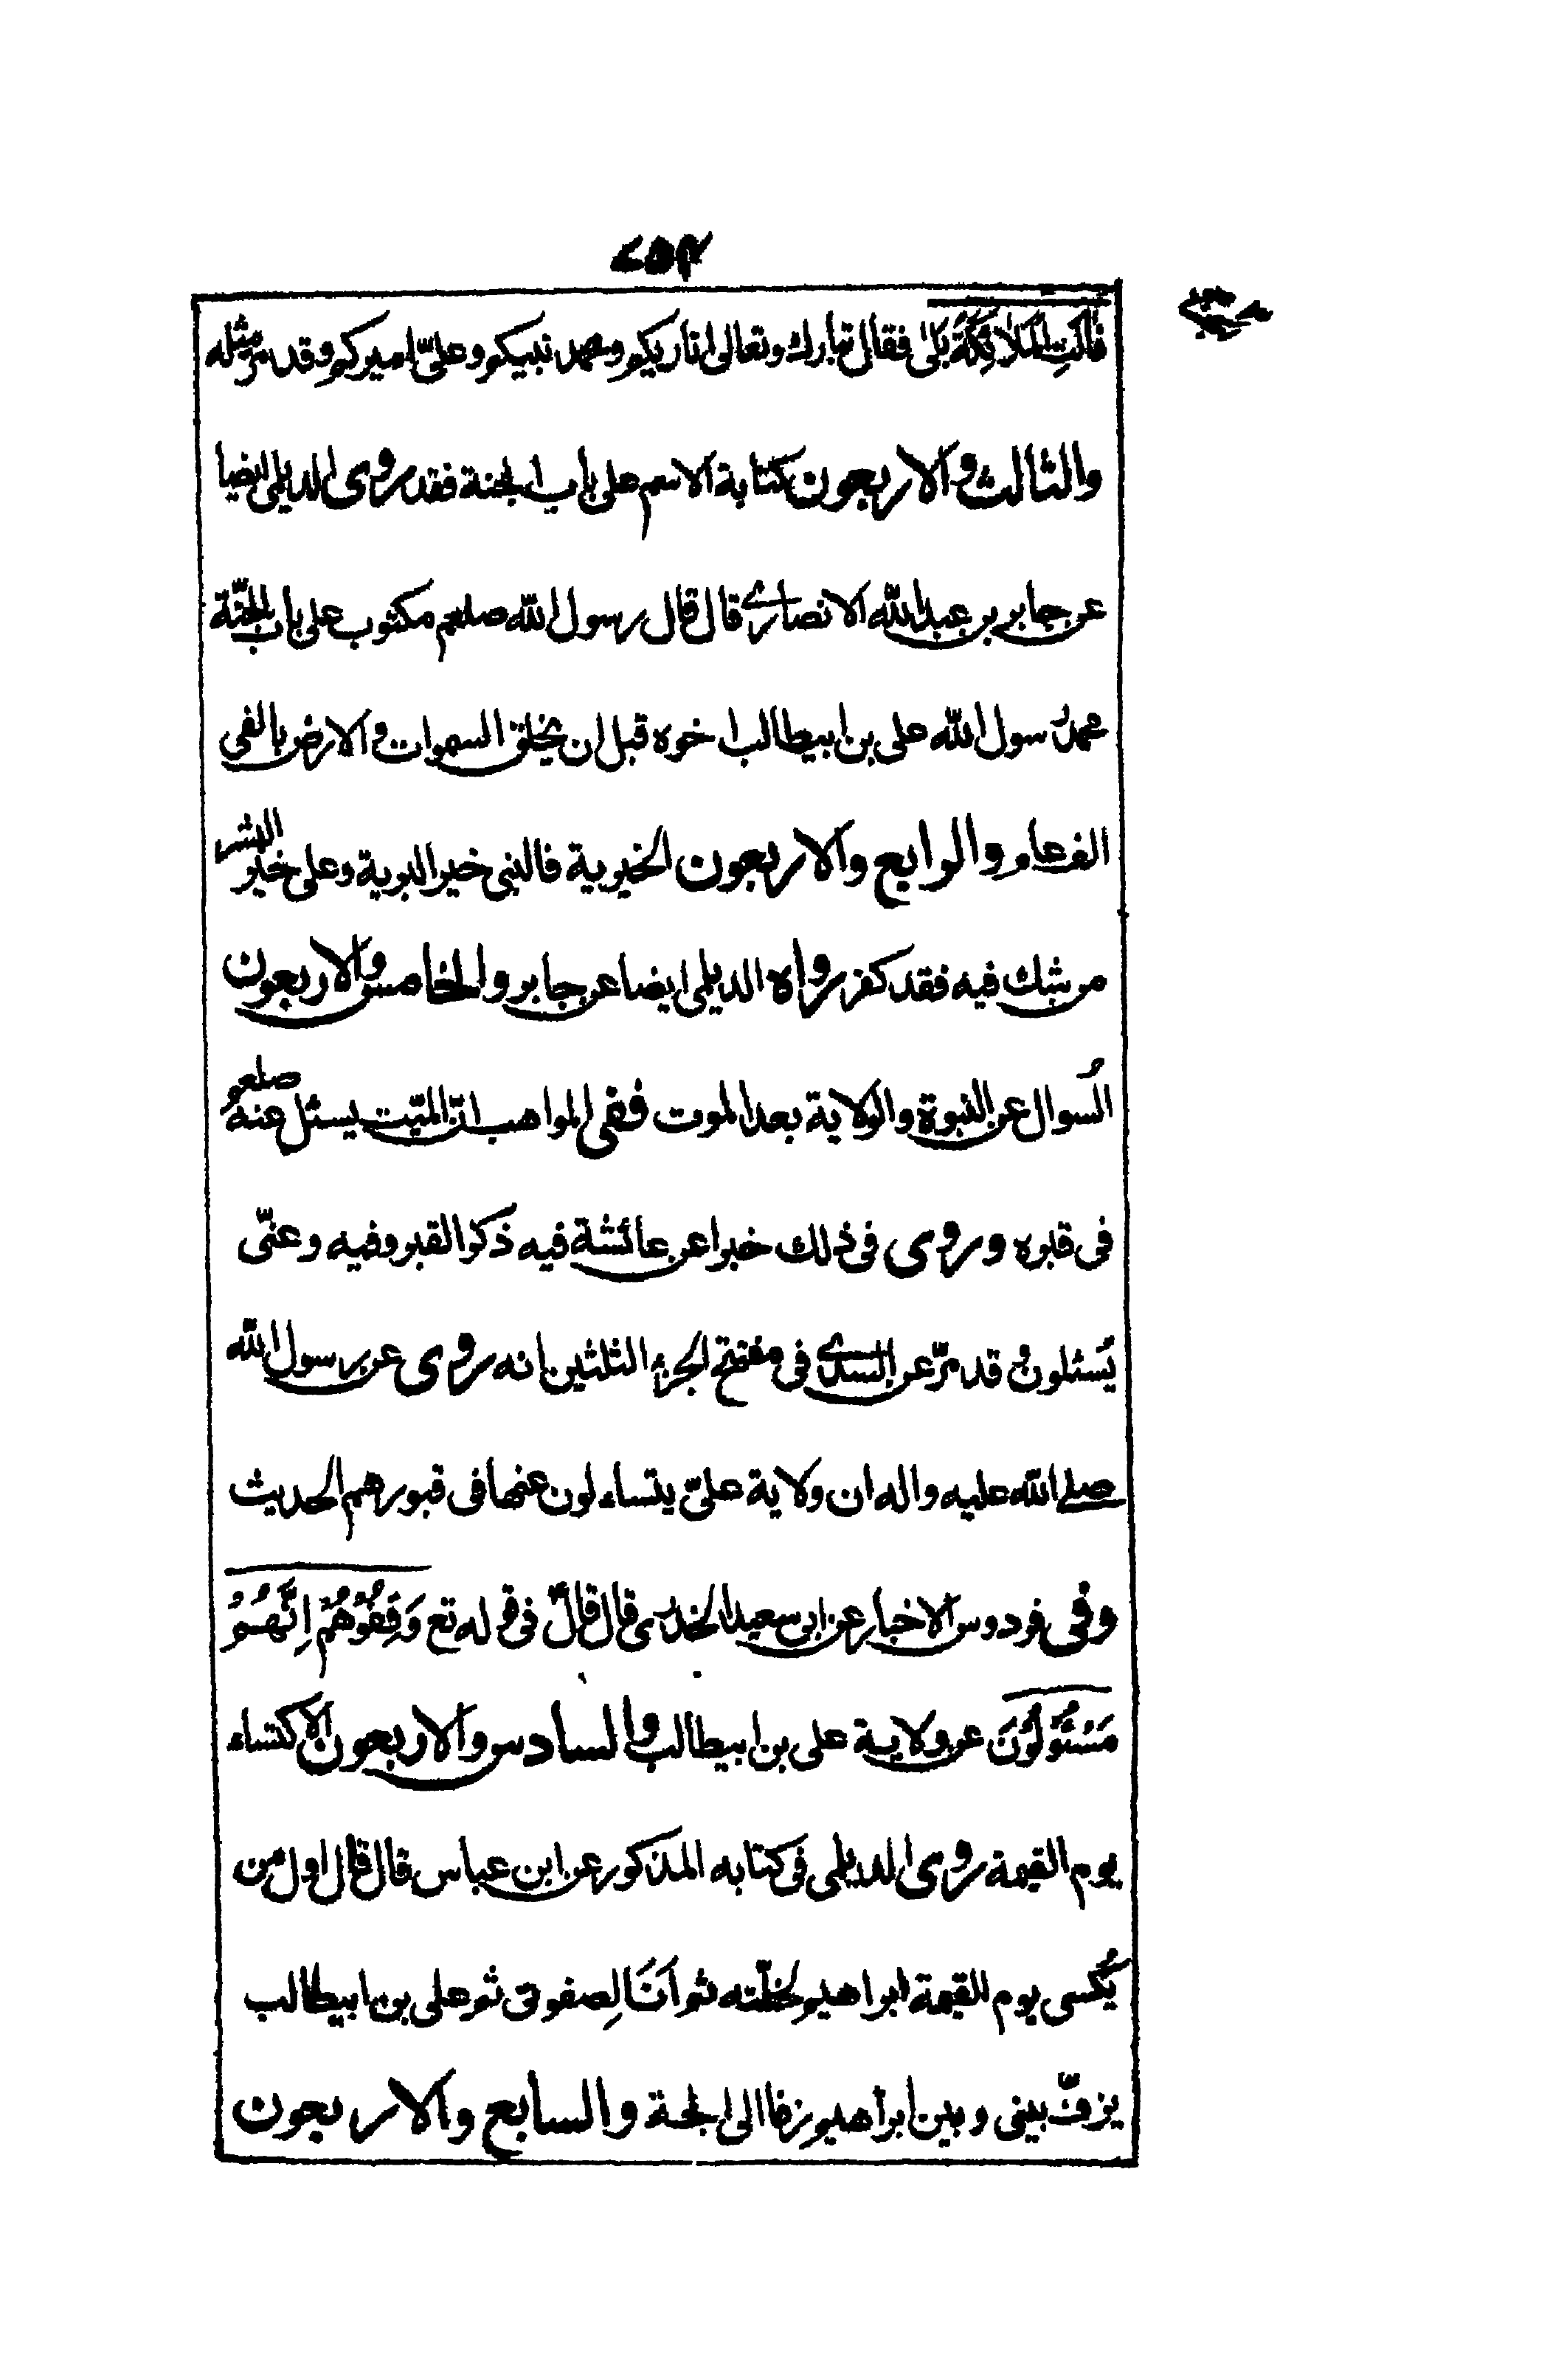 ٧٥٣
قالت الملائكة بلى فقال تبارك وتعالى انا ربكم ومحمد نبيكم وعليّ اميركم وقد مرّ مثله
والثالث والاربعون كتابة الاسم على باب الجنة فقد روى الديلمي ايضا
عن جابر بن عبد الله الانصاري قال قال رسول الله صلعم مكتوب على باب الجنّة
محمد رسول الله علي بن ابيطالب اخوه قبل ان يخلق السموات والارض بالفي
الف عام والرابع والاربعون الخيرية فالنبي خير البرية وعلي خير البشر
من شك فيه فقد كفر رواه الديلمي ايضا عن جابر والخامس والاربعون
السوال عن النبوة والولاية بعد الموت ففي المواهب انّ الميّت يسئل عنه صلعم
في قبره وروى في ذلك خبرا عن عائشة فيه ذكر القبر وفيه وعنّي
يُسئلون وقد مرّ عن السدي في مفتتح الجزء الثلثين انه روى عن رسول الله
صلى الله عليه واله ان ولاية عليّ يتساءلون عنها في قبورهم الحديث
وفي فردوس الاخبار عن ابي سعيد الخدري قال قال في قوله تع وَقِفُوْهُمْ اِنَّهُمْ
مَسْئُوْلُوْنَ عن ولاية علي بن ابيطالب والسادس والاربعون الاكتساء
يوم القيمة روى الديلمي في كتابه المذكور عن ابن عباس قال قال اول من
يُكسى يوم القيمة ابراهيم لخلّته ثم اَنَا لصفوتي ثم علي بن ابيطالب
يزفّ بيني وبين ابراهيم زفا الى الجنة والسابع والاربعون